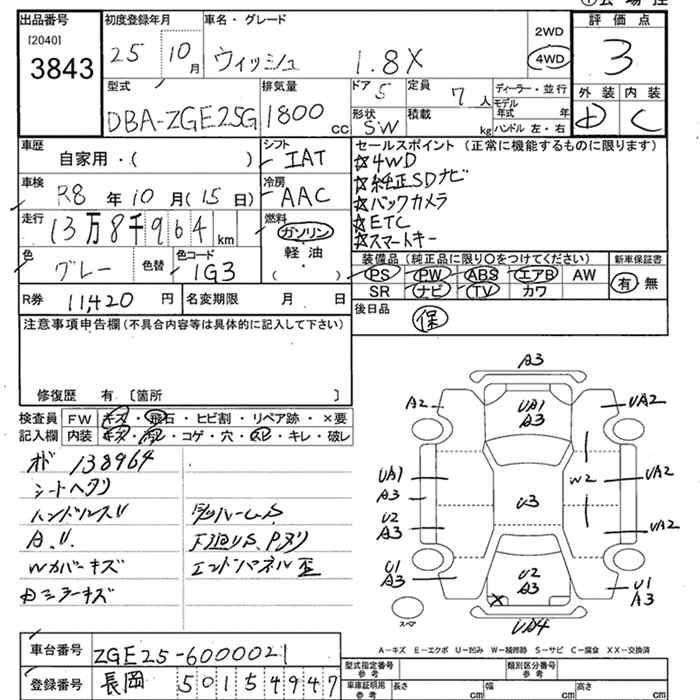 出品番号
[2040]
3843
初度登録年月
25 10月
車名・グレード
ウィッシュ 1.8X
2WD
4WD
評価点
3
外装 内装
D C
型式
DBA-ZGE25G
排気量
1800cc
ドア 5
定員 7人
形状 SW
積載 kg
ディーラー・並行
モデル年式 年
ハンドル 左・右
車歴
自家用・( )
シフト
IAT
車検
R8年10月(15日)
冷房
AAC
走行
13万8千964km
燃料
ガソリン
軽油
( )
色
グレー
色替
色コード
1G3
R券 11,420円
名変期限 月 日
セールスポイント (正常に機能するものに限ります)
☆4WD
☆純正SDナビ
☆バックカメラ
☆ETC
☆スマートキー
装備品(純正品に限り○をつけてください)
新車保証書
PS PW ABS エアB AW
SR ナビ TV カワ
有・無
後日品
保
注意事項申告欄(不具合内容等は具体的に記入して下さい)
修復歴 有 〔箇所 〕
検査員記入欄
FW キズ・飛石・ヒビ割・リペア跡・×要
内装 キズ・汚レ・コゲ・穴・スレ・キレ・破レ
138964
シートヘタリ
ハンドルスレ
Wカバーキズ
エンドパネル歪
A3
A2
UA1
A3
UA2
UA1
A3
U2
A3
U3
W2
UA2
UA2
U1
A3
U2
A3
U1
A3
UA4
スペア
A-キズ E-エクボ U-凹み W-補修跡 S-サビ C-腐食 XX-交換済
車台番号
ZGE25-6000021
登録番号
長岡 501 54947
型式指定番号
参考
類別区分番号
参考
車庫証明用
参考
長さ cm
幅 cm
高さ cm